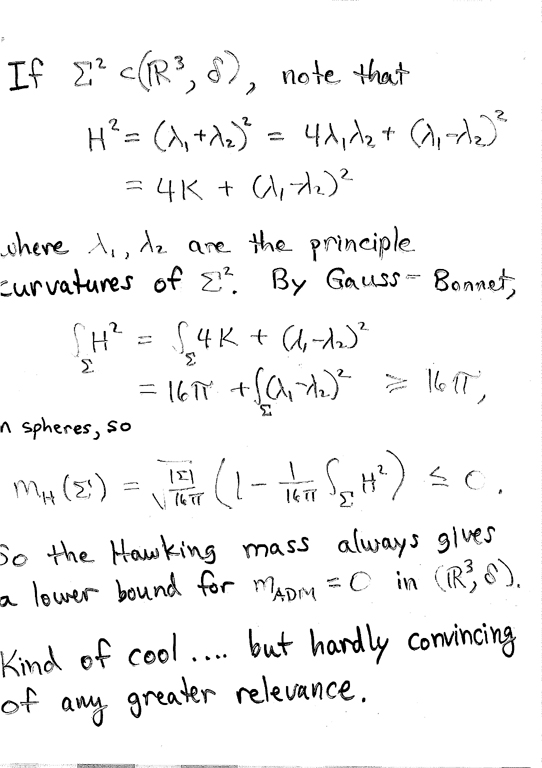 If Σ² ⊂ (ℝ³, δ), note that
H² = (λ₁+λ₂)² = 4λ₁λ₂ + (λ₁-λ₂)²
= 4K + (λ₁-λ₂)²
where λ₁, λ₂ are the principle
curvatures of Σ². By Gauss-Bonnet,
∫_Σ H² = ∫_Σ 4K + (λ₁-λ₂)²
= 16π + ∫_Σ (λ₁-λ₂)² ≥ 16π,
n spheres, so
m_H(Σ) = √(|Σ|/16π) (1 - 1/16π ∫_Σ H²) ≤ 0.
So the Hawking mass always gives
a lower bound for m_ADM = 0 in (ℝ³, δ).
Kind of cool .... but hardly convincing
of any greater relevance.